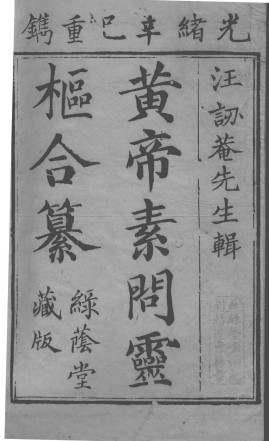 光緒辛巳重鐫
汪訒菴先生輯
黃帝素問靈
樞合纂
綠蔭堂
藏版